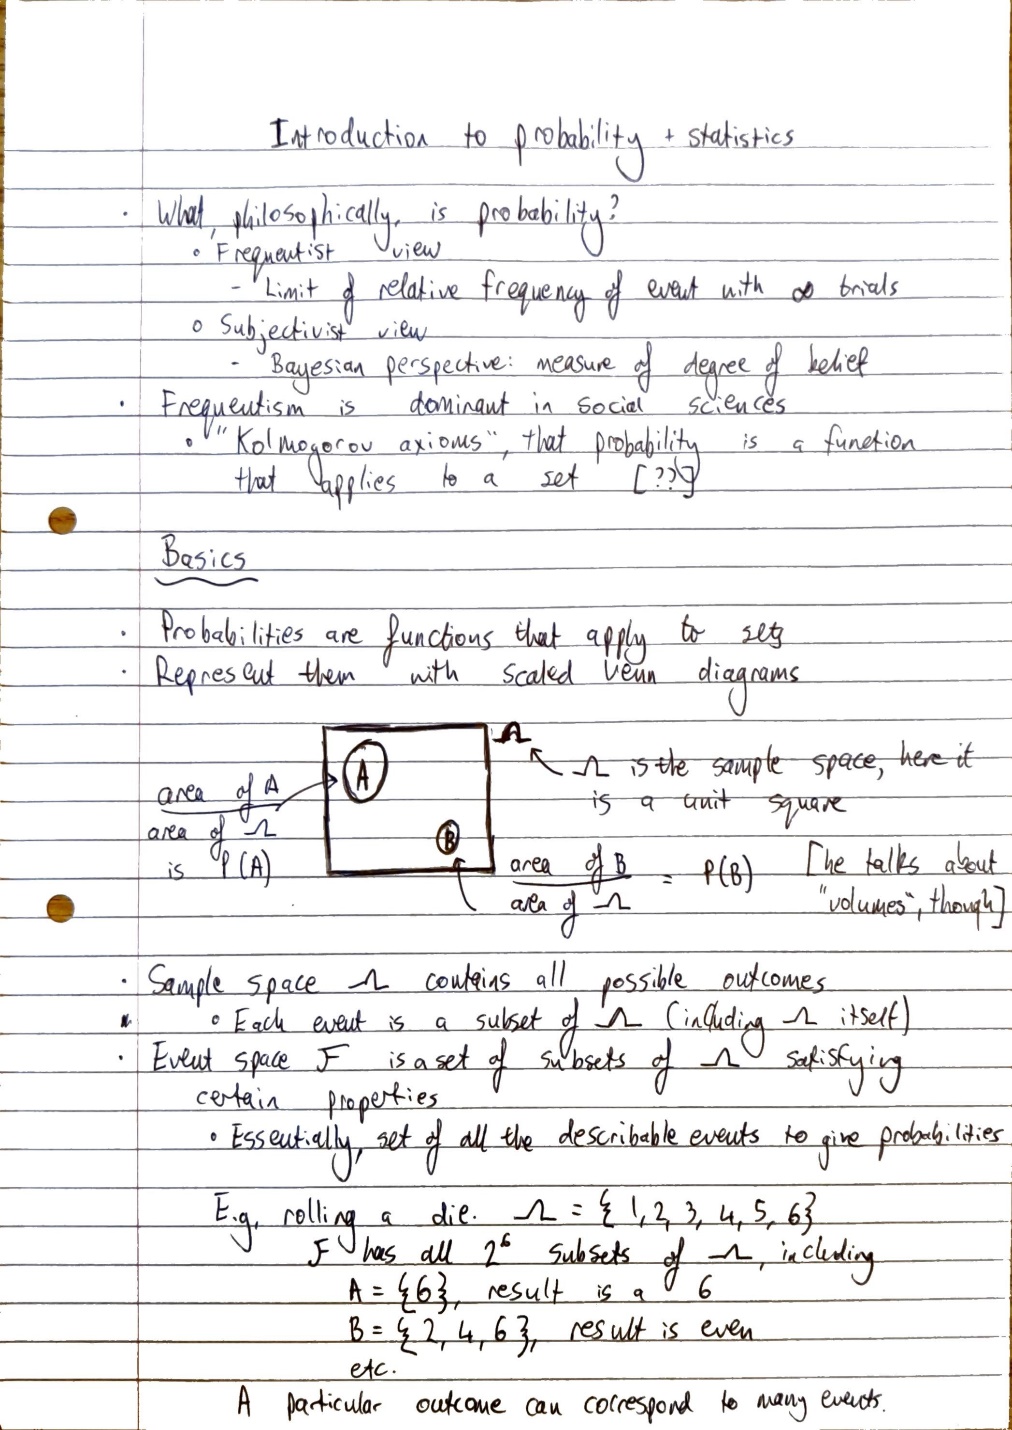 Introduction to probability + statistics
· What, philosophically, is probability?
∘ Frequentist view
- Limit of relative frequency of event with ∞ trials
∘ Subjectivist view
- Bayesian perspective: measure of degree of belief
· Frequentism is dominant in social sciences
∘ "Kolmogorov axioms", that probability is a function
that applies to a set [??]
Basics
· Probabilities are functions that apply to sets
· Represent them with scaled Venn diagrams
Ω
A
B
area of A
area of Ω
is P(A)
Ω is the sample space, here it
is a unit square
area of B
area of Ω
= P(B)
[he talks about
"volumes", though]
· Sample space Ω contains all possible outcomes
∘ Each event is a subset of Ω (including Ω itself)
· Event space F is a set of subsets of Ω satisfying
certain properties
∘ Essentially, set of all the describable events to give probabilities
E.g, rolling a die. Ω = {1, 2, 3, 4, 5, 6}
F has all 2⁶ subsets of Ω, including
A = {6}, result is a 6
B = {2, 4, 6}, result is even
etc.
A particular outcome can correspond to many events.